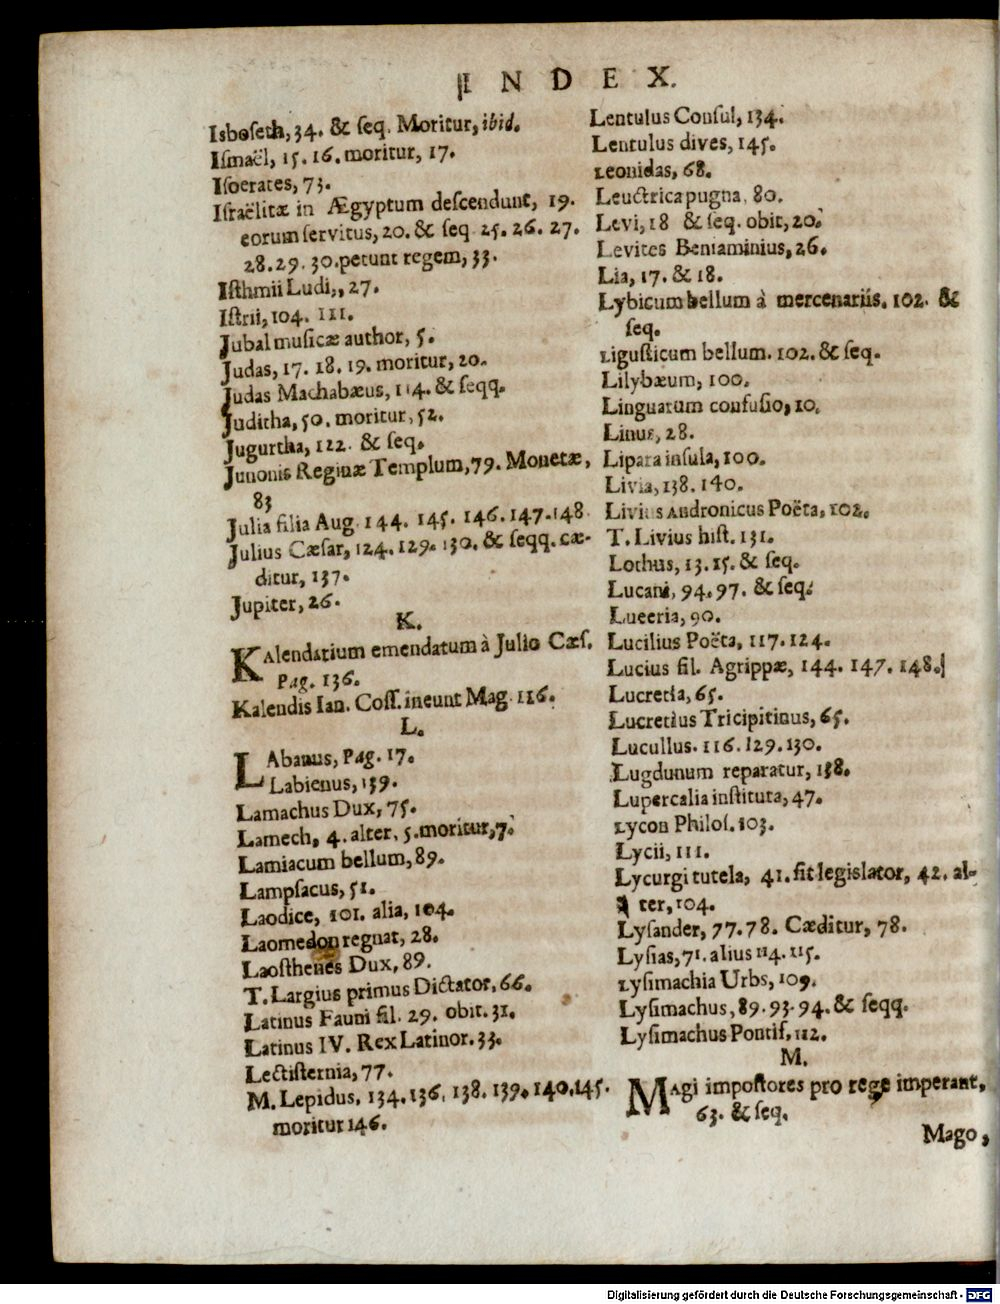 INDEX.
Isboseth, 34. & seq. Moritur, ibid.
Ismaël, 15. 16. moritur, 17.
Isoerates, 73.
Israëlitæ in Ægyptum descendunt, 19.
eorum servitus, 20. & seq 25. 26. 27.
28. 29. 30. petunt regem, 33.
Isthmii Ludi,, 27.
Istrii, 104. 111.
Jubal musicæ author, 5.
Judas, 17. 18. 19. moritur, 20.
Judas Machabæus, 114. & seqq.
Juditha, 50. moritur, 52.
Jugurtha, 122. & seq.
Junonis Reginæ Templum, 79. Monetæ,
83
Julia filia Aug. 144. 145. 146. 147. 148.
Julius Cæsar, 124. 129. 130. & seqq. cæ-
ditur, 137.
Jupiter, 26.
K.
KAlendarium emendatum à Julio Cæs.
Pag. 136.
Kalendis Ian. Coss. ineunt Mag. 116.
L.
LAbanus, Pag. 17.
Labienus, 139.
Lamachus Dux, 75.
Lamech, 4. alter, 5. moritur, 7.
Lamiacum bellum, 89.
Lampsacus, 51.
Laodice, 101. alia, 104.
Laomedon regnat, 28.
Laosthenes Dux, 89.
T. Largius primus Dictator, 66.
Latinus Fauni fil. 29. obit. 31.
Latinus IV. Rex Latinor. 33.
Lectisternia, 77.
M. Lepidus, 134. 136. 138. 139. 140. 145.
moritur 146.
Lentulus Consul, 134.
Lentulus dives, 145.
Leonidas, 68.
Leuctrica pugna, 80.
Levi, 18 & seq. obit, 20.
Levites Beniaminius, 26.
Lia, 17. & 18.
Lybicum bellum à mercenariis. 102. &
seq.
Ligusticum bellum. 102. & seq.
Lilybæum, 100.
Linguarum confusio, 10.
Linus, 28.
Lipara insula, 100.
Livia, 138. 140.
Livius Andronicus Poëta, 102.
T. Livius hist. 131.
Lothus, 13. 15. & seq.
Lucani, 94. 97. & seq.
Lueeria, 90.
Lucilius Poëta, 117. 124.
Lucius fil. Agrippæ, 144. 147. 148.
Lucretia, 65.
Lucretius Tricipitinus, 65.
Lucullus. 116. 129. 130.
Lugdunum reparatur, 138.
Lupercalia instituta, 47.
Lycon Philos. 103.
Lycii, 111.
Lycurgi tutela, 41. fit legislator, 42. al-
ter, 104.
Lysander, 77. 78. Cæditur, 78.
Lysias, 71. alius 114. 115.
Lysimachia Urbs, 109.
Lysimachus, 89. 93. 94. & seqq.
Lysimachus Pontif, 112.
M.
MAgi impostores pro rege imperant,
63. & seq.
Mago,
Digitalisierung gefördert durch die Deutsche Forschungsgemeinschaft - DFG